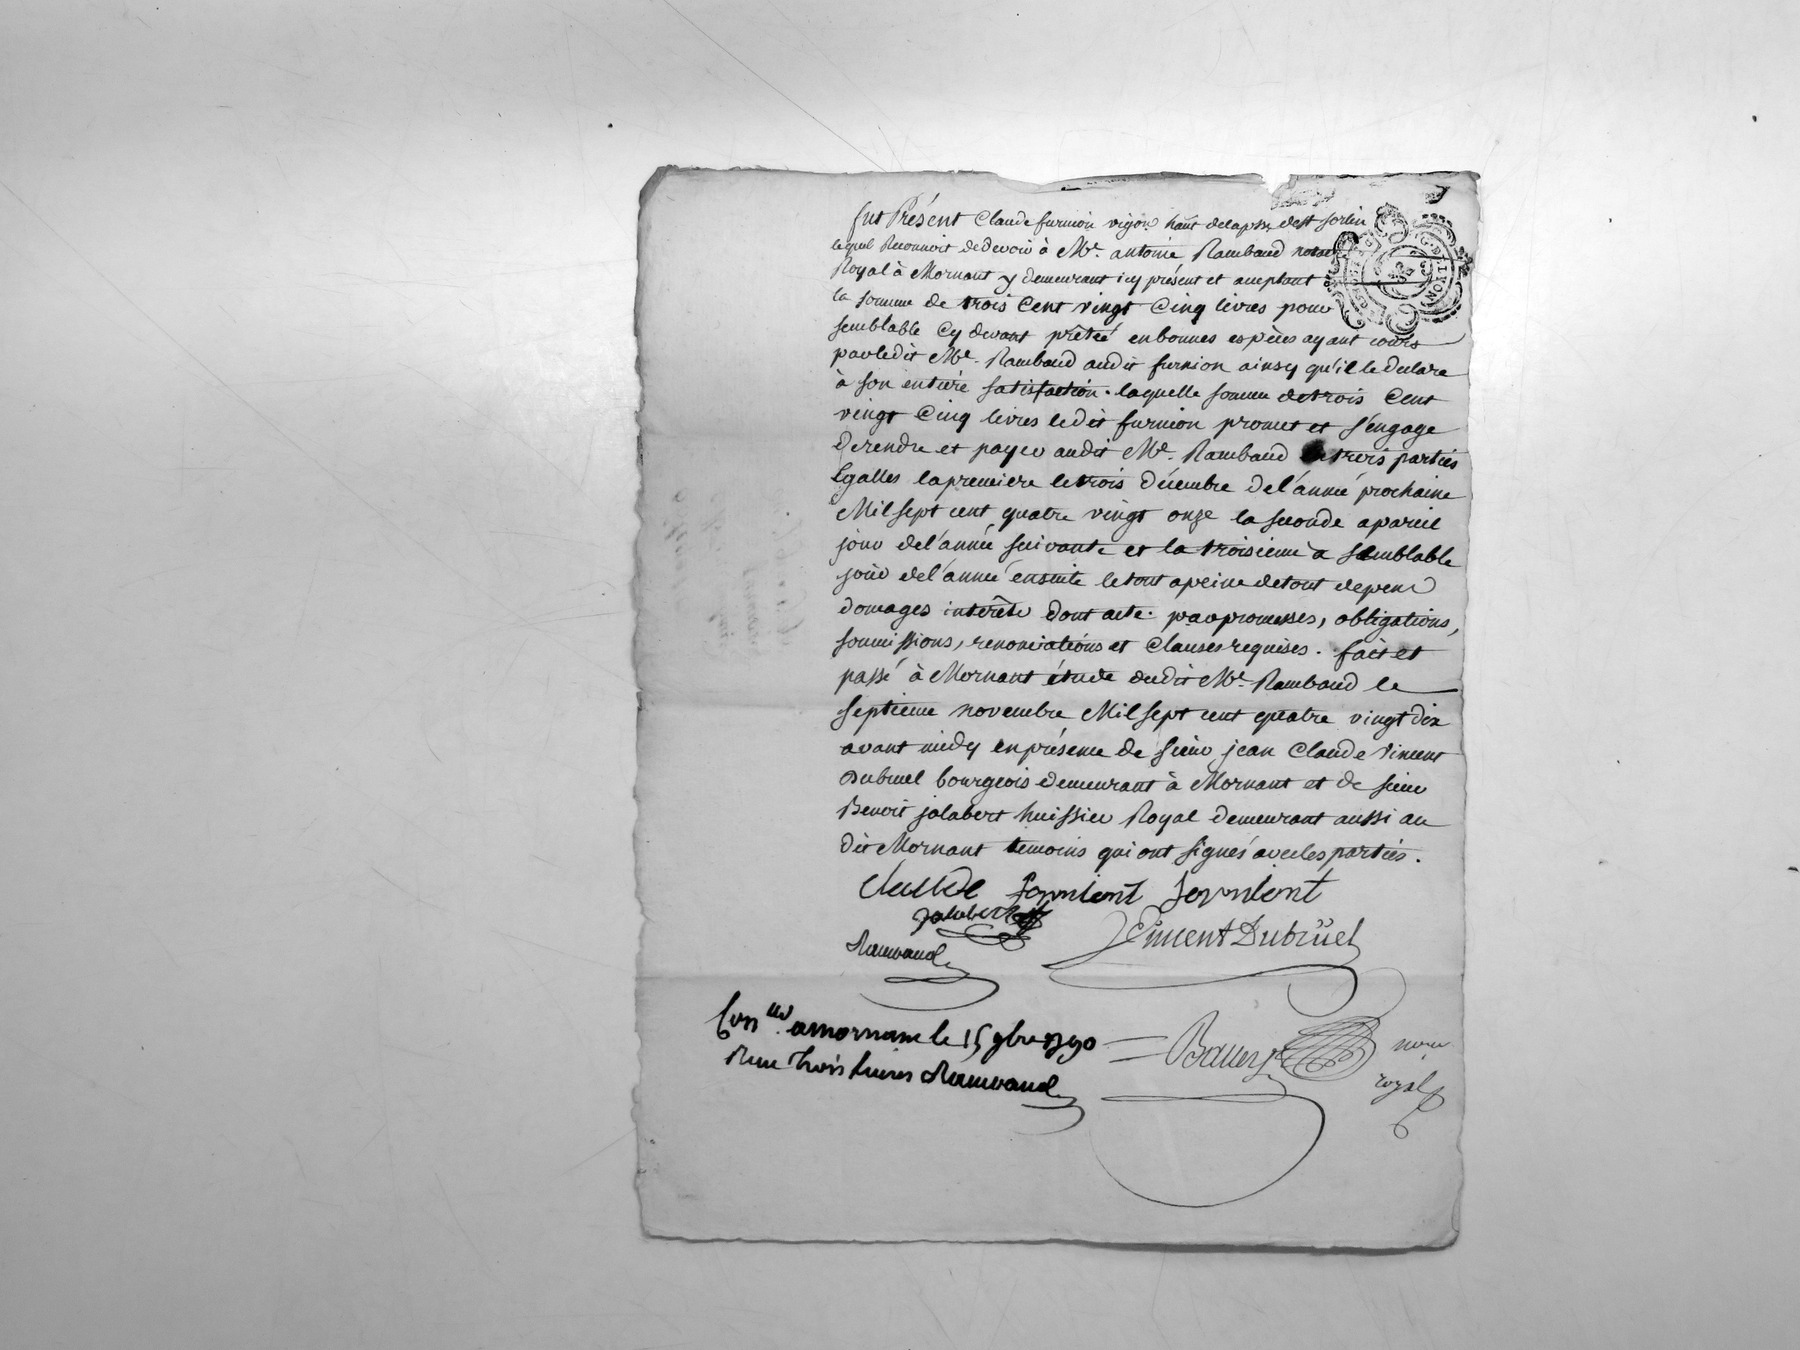 fut Présent Claude furnion vigon haut de la psse de st sorlin
lequel Reconnoit de devoir à Me. antoine Rambaud notaire
Royal à Mornant y demeurant icy présent et aceptant
la somme de trois Cent vingt Cinq livres pour
semblable Cy devant prêtée en bonnes espèces ayant cours
par ledit Me. Rambaud audit furnion ainsy qu'il le declare
à son entière satisfaction. laquelle somme de trois Cent
vingt Cinq livres ledit furnion promet et s'engage
de rendre et payer audit Me. Rambaud en trois parties
Egalles la premiere le trois décembre de l'année prochaine
Mil sept cent quatre vingt onze la seconde a pareil
jour de l'année suivante et la troisieme a semblable
jour de l'année ensuite le tout a peine de tout depens
domages interêts dont acte. par promesses, obligations,
soumissions, renonciations et Clauses requises. fait et
passé à Mornant étude dudit Me. Rambaud le
septieme novembre Mil sept cent quatre vingt dix
avant midy en présence de sieur jean Claude Vincent
Dubruel bourgeois demeurant à Mornant et de sieur
Benoit jalabert huissier Royal demeurant aussi au
dit Mornant temoins qui ont signés avec les parties.
Claude fournient fournient
Jalabert
Vincent Dubruel
Rambaud
Con.lle a mornant le 15 9bre 1790
Reçu trois livres Rambaud
nore
royal
G. DE LION